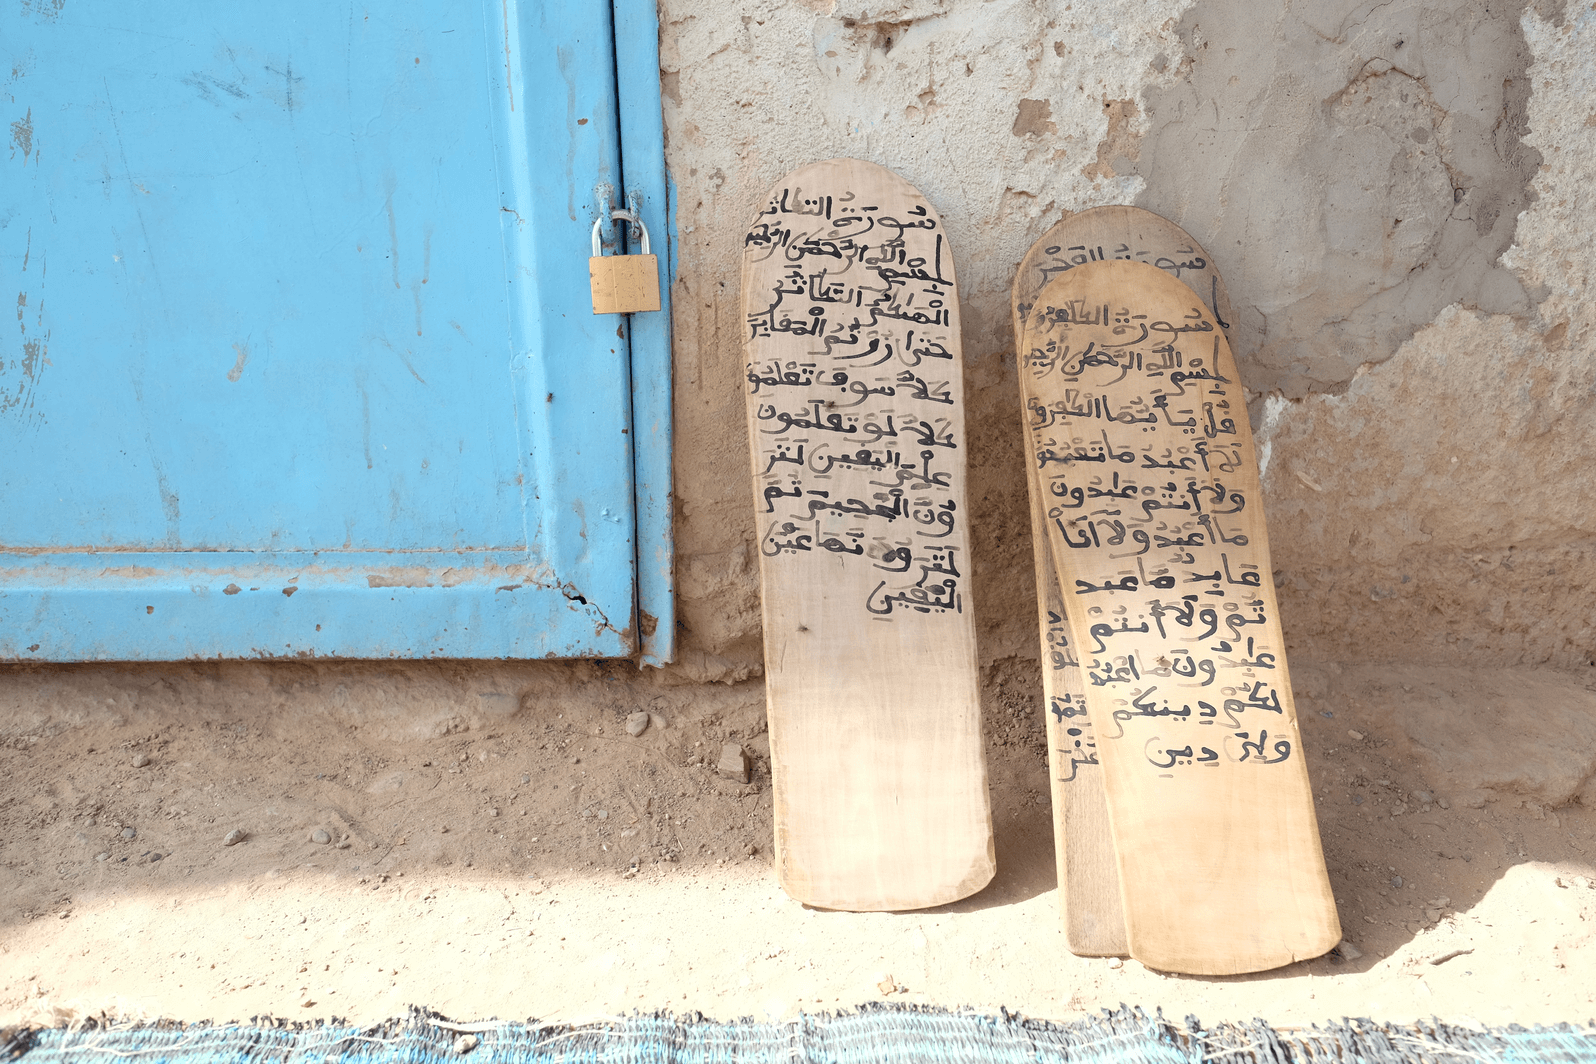 سُورَةُ التكاثر
بِسْمِ اللَّهِ الرَّحْمَنِ الرَّحِيمِ
أَلْهَىكُمُ التَّكَاثُرُ
حَتَّى زُرْتُمُ الْمَقَابِرَ
كَلَّا سَوْفَ تَعْلَمُو
كَلَّا لَوْ تَعْلَمُونَ
عِلْمَ الْيَقِينِ لَتَرَ
وُنَّ الْجَحِيمَ ثُمَّ
لَتَرَوُنَّهَا عَيْنَ
الْيَقِينِ
سُورَةُ الكافرون
بِسْمِ اللَّهِ الرَّحْمَنِ الرَّحِيمِ
قُلْ يَا أَيُّهَا الْكَافِرُونَ
لَا أَعْبُدُ مَا تَعْبُدُو
وَلَا أَنتُمْ عَابِدُونَ
مَا أَعْبُدُ وَلَا أَنَا
عَابِدٌ مَّا عَبَد
تُّمْ وَلَا أَنتُمْ
عَابِدُونَ مَا أَعْبُدُ
لَكُمْ دِينُكُمْ
وَلِيَ دِينِ
سُورَةُ